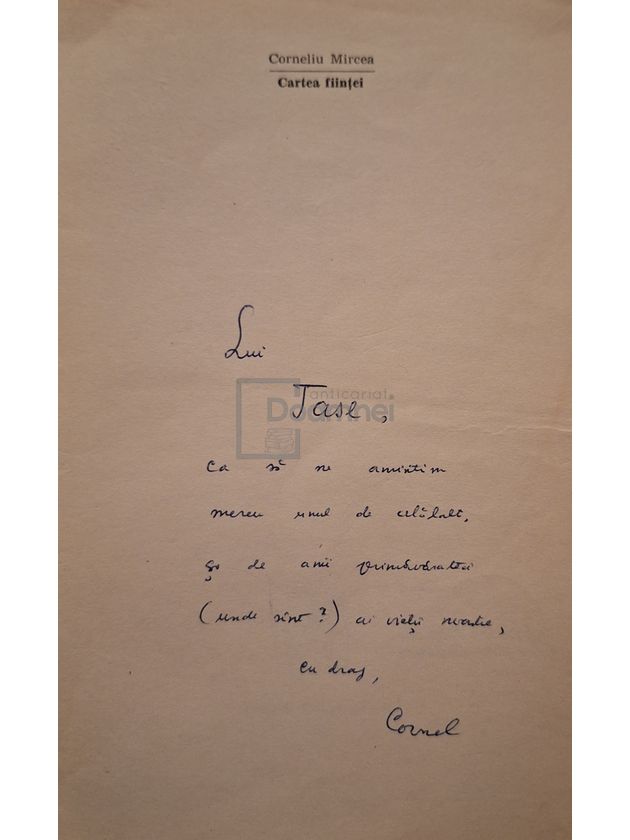 Corneliu Mircea
Cartea ființei
Lui
anticariat
Doamnei
Tase,
ca să ne amintim
mereu unul de celălalt,
și de anii
(unde sînt?) ai vieții noastre,
cu drag,
Cornel